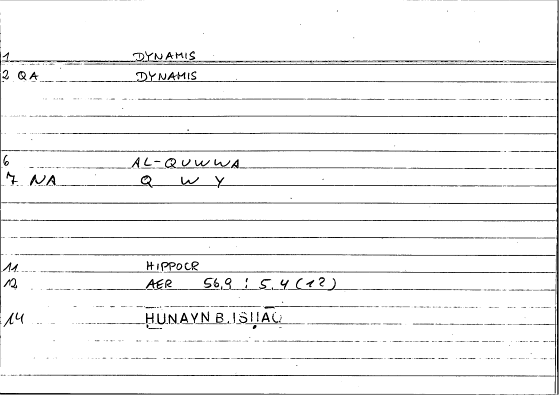 1 DYNAMIS
2 QA DYNAMIS
6 AL-QUWWA
7 NA Q W Y
11 HIPPOCR
12 AER 56,9 : 5,4 (1?)
14 ḤUNAYN B. ISḤĀQ